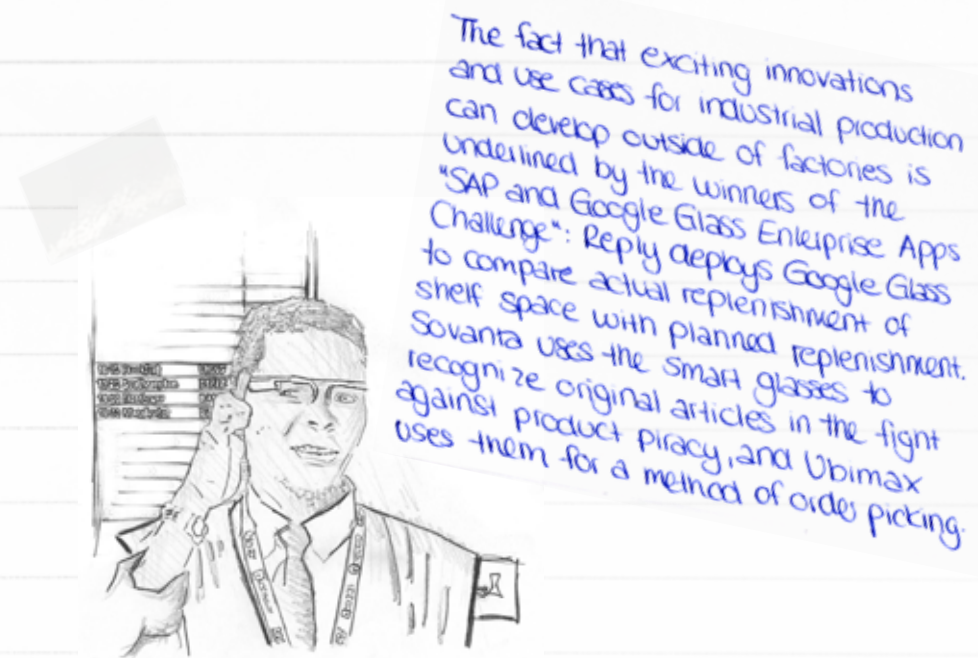 The fact that exciting innovations
and use cases for industrial production
can develop outside of factories is
underlined by the winners of the
"SAP and Google Glass Enterprise Apps
Challenge": Reply deploys Google Glass
to compare actual replenishment of
shelf space with planned replenishment.
Sovanta uses the smart glasses to
recognize original articles in the fight
against product piracy, and Ubimax
uses them for a method of order picking.